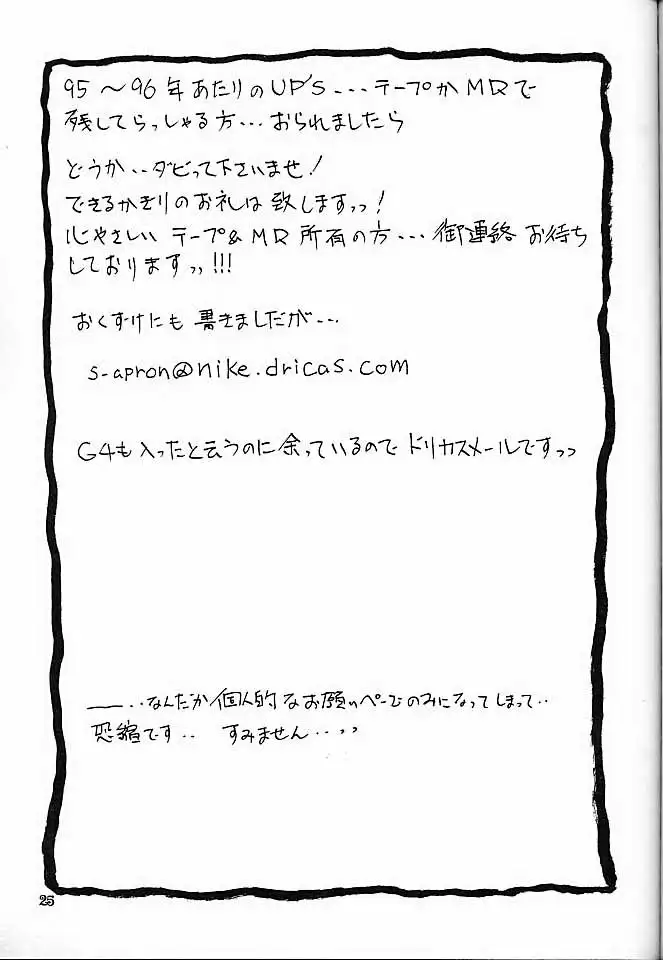 95～96年あたりのUP'S...テープかMDで
残してらっしゃる方...おられましたら
どうか..ダビって下さいませ!
できるかぎりのお礼は致しますっっ!
心やさしい テープ&MD所有の方... 御連絡お待ち
しておりますっっ!!!
おくずけにも 書きましたが...
s-apron@nike.dricas.com
G4も入ったと云うのに余っているのでドリカスメールですっっ
――..なんだか個人的なお願いぺーじのみになってしまって..
恐縮です.. すみません..っっ
25